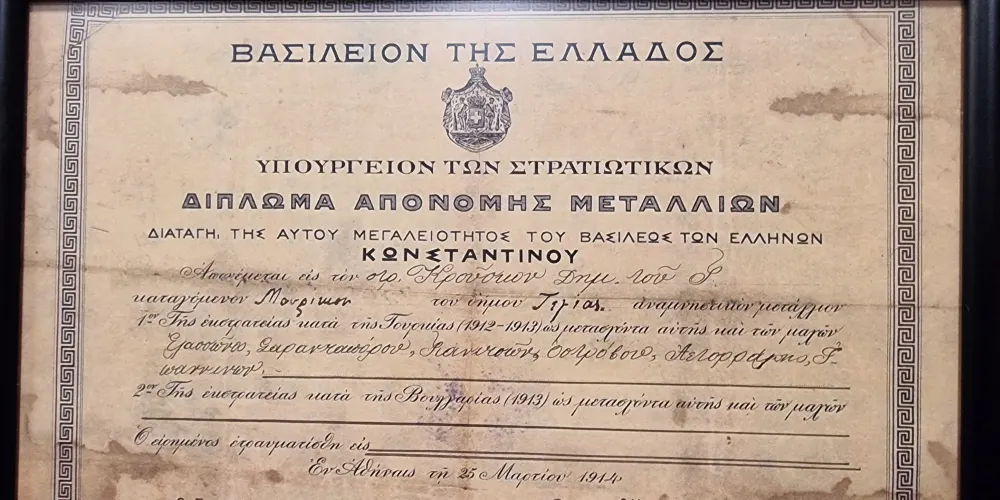 ΒΑΣΙΛΕΙΟΝ ΤΗΣ ΕΛΛΑΔΟΣ
ΥΠΟΥΡΓΕΙΟΝ ΤΩΝ ΣΤΡΑΤΙΩΤΙΚΩΝ
ΔΙΠΛΩΜΑ ΑΠΟΝΟΜΗΣ ΜΕΤΑΛΛΙΩΝ
ΔΙΑΤΑΓΗ, ΤΗΣ ΑΥΤΟΥ ΜΕΓΑΛΕΙΟΤΗΤΟΣ ΤΟΥ ΒΑΣΙΛΕΩΣ ΤΩΝ ΕΛΛΗΝΩΝ
ΚΩΝΣΤΑΝΤΙΝΟΥ
Ἀπονέμεται εἰς τὸν στρ. Δημ. τοῦ Γ.
καταγόμενον τοῦ δήμου ἀναμνηστικὸν μετάλλιον
1ον Τῆς ἐκστρατείας κατὰ τῆς Τουρκίας (1912-1913) ὡς μετασχόντα αὐτῆς καὶ τῶν μαχῶν
Ἐλασσῶνος, Σαρανταπόρου, Ὀστρόβου, Ἀετορράχης, Ἰ-
ωαννίνων.
2ον Τῆς ἐκστρατείας κατὰ τῆς Βουλγαρίας (1913) ὡς μετασχόντα αὐτῆς καὶ τῶν μαχῶν
Ὁ εἰρημένος ἐτραυματίσθη εἰς
Ἐν Ἀθήναις τῇ 25 Μαρτίου 1914